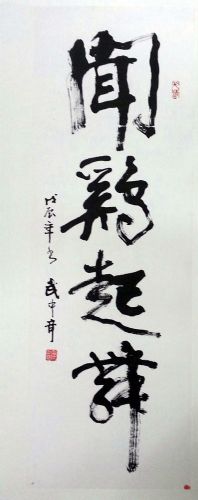 聞鷄起舞
戊辰年冬
武中奇